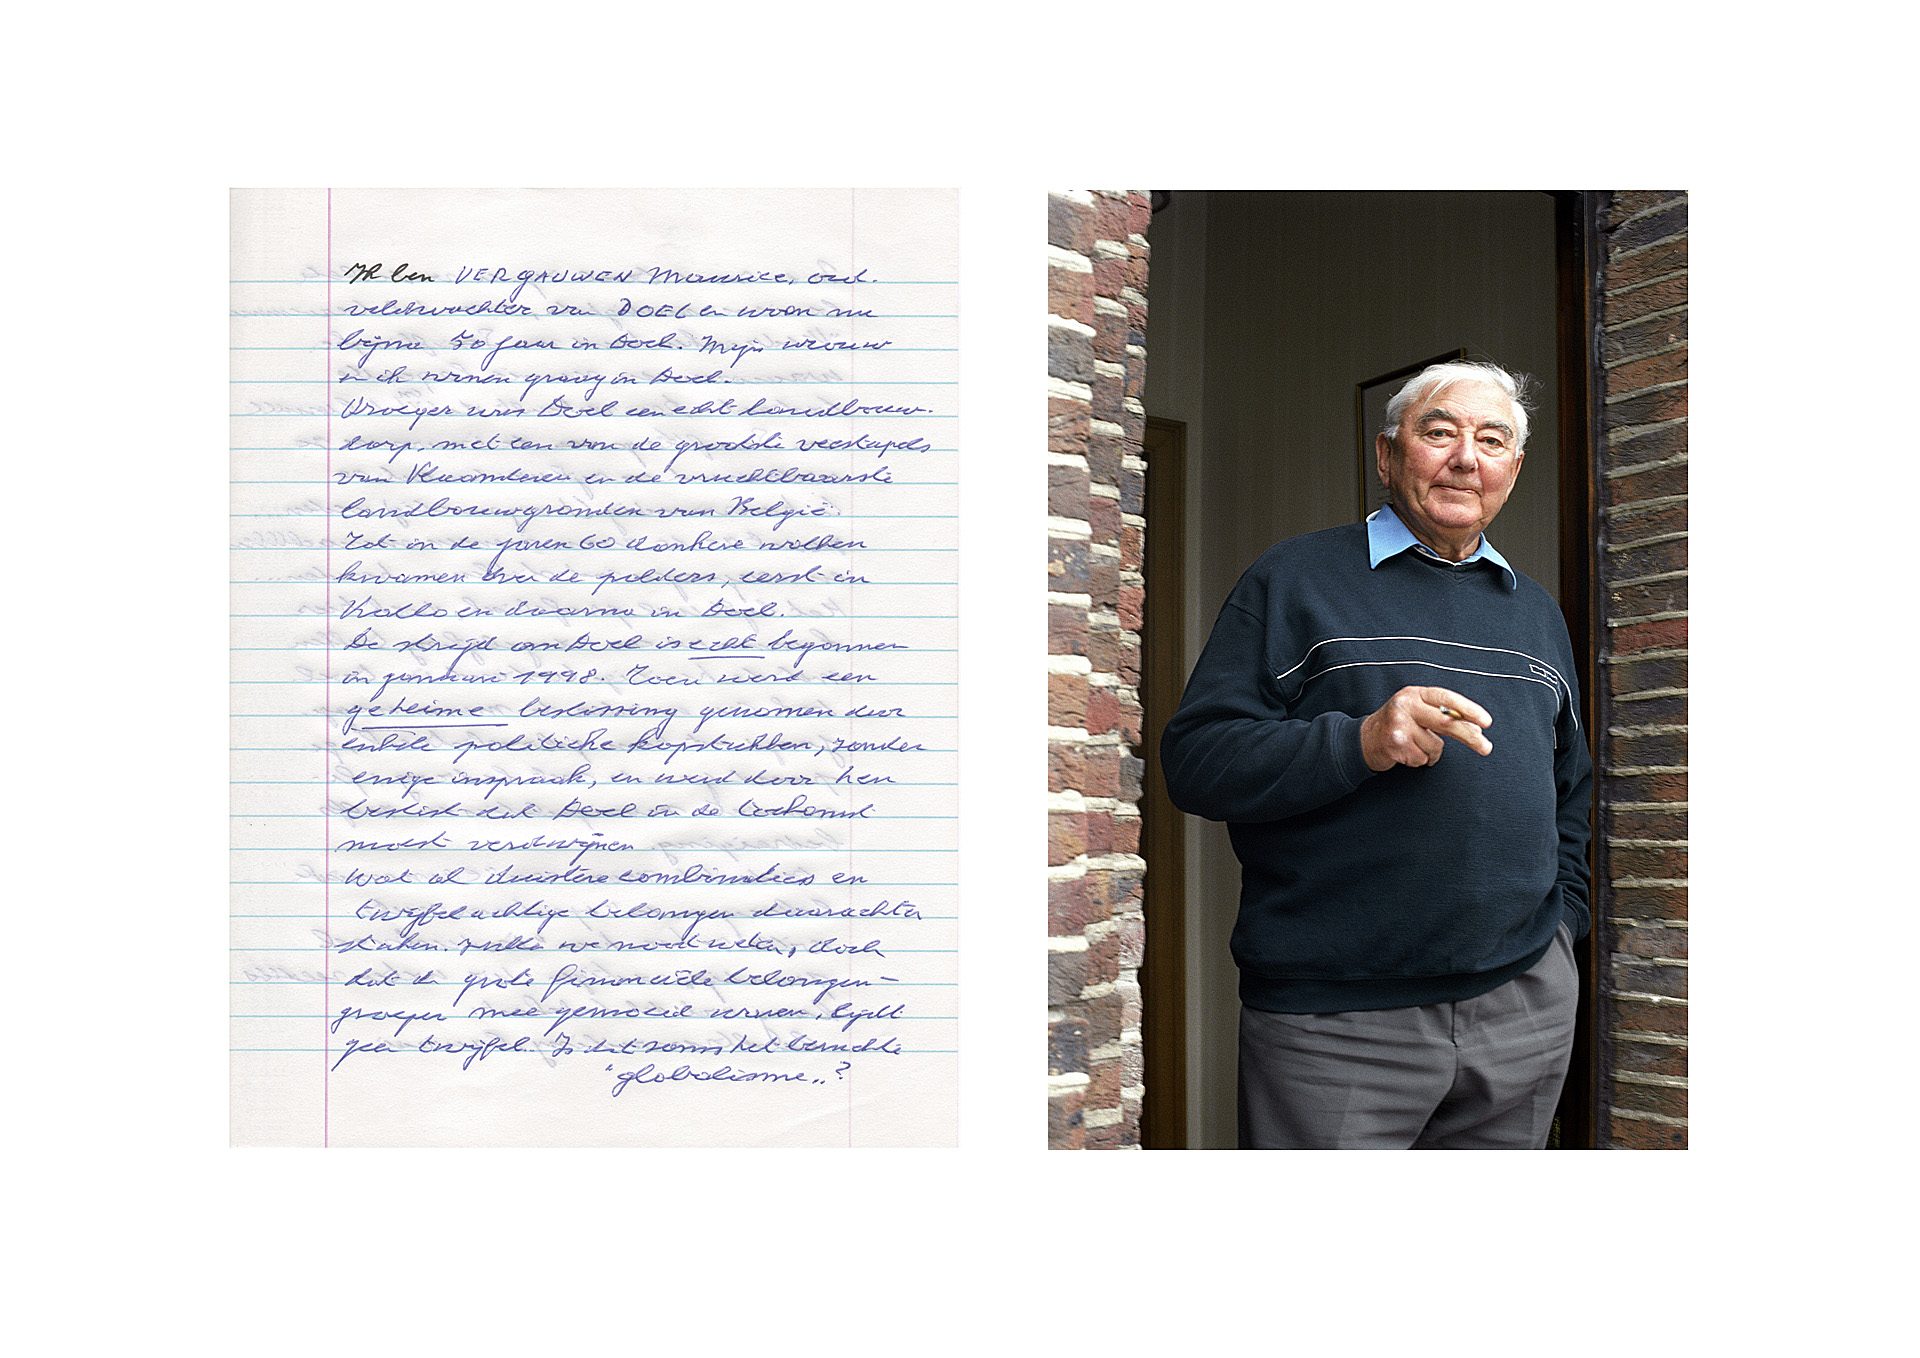 Ik ben VERGAUWEN Maurice, oud.
veldwachter van DOEL en woon nu
bijna 50 jaar in Doel. Mijn vrouw
en ik wonen graag in Doel.
Vroeger was Doel een echt landbouw-
dorp, met een van de grootste veestapels
van Vlaanderen en de vruchtbaarste
landbouwgronden van België.
Tot in de jaren 60 donkere wolken
kwamen over de polders, eerst in
Kallo en daarna in Doel.
De strijd om Doel is echt begonnen
in januari 1998. Toen werd een
geheime beslissing genomen door
enkele politieke kopstukken, zonder
enige inspraak, en werd door hen
beslist dat Doel in de toekomst
moest verdwijnen.
Wat al duistere combinaties en
twijfelachtige belangen daarachter
steken. zullen we nooit weten, doch
dat de grote financiële belangen-
groepen mee gemoeid waren, lijdt
geen twijfel. Is dat soms het beruchte
"globalisme„?